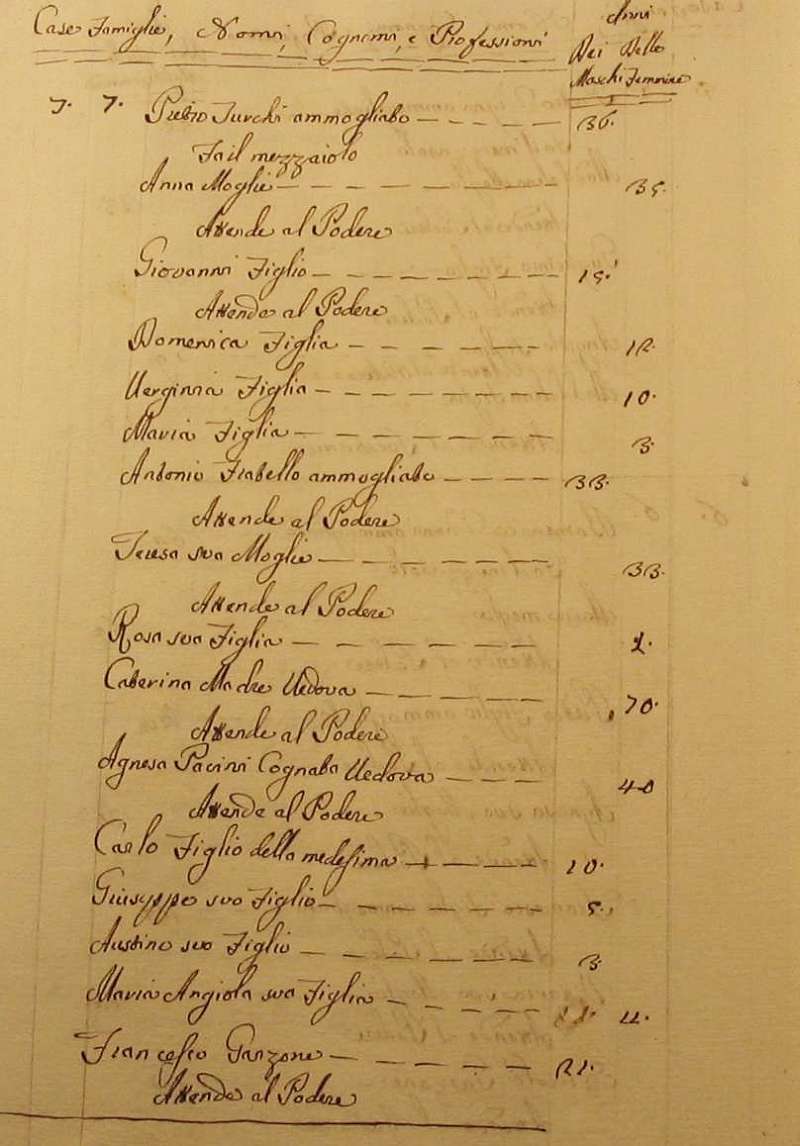 Case Famiglie, Nomi, Cognomi, e Professioni
Anni
Dei Delle
Maschi Femmine
7. 7. Pietro Turchi ammogliato 36.
Fa il mezzaiolo
Anna Moglie 35.
Attende al Podere
Giovanni Figlio 15.
Attende al Podere
Domenica Figlia 12.
Verginia Figlia 10.
Maria Figlia 3.
Antonio Fratello ammogliato 33.
Attende al Podere
Teresa sua Moglie 33.
Attende al Podere
Rosa sua Figlia
Caterina Madre Vedova 70.
Attende al Podere
Agnesa Pacini Cognata Vedova 40
Attende al Podere
Carlo Figlio della medesima 10.
Giuseppe suo Figlio 5.
Austino suo Figlio 3.
Maria Angiola sua Figlia 11.
Francesco Garzone 21.
Attende al Podere